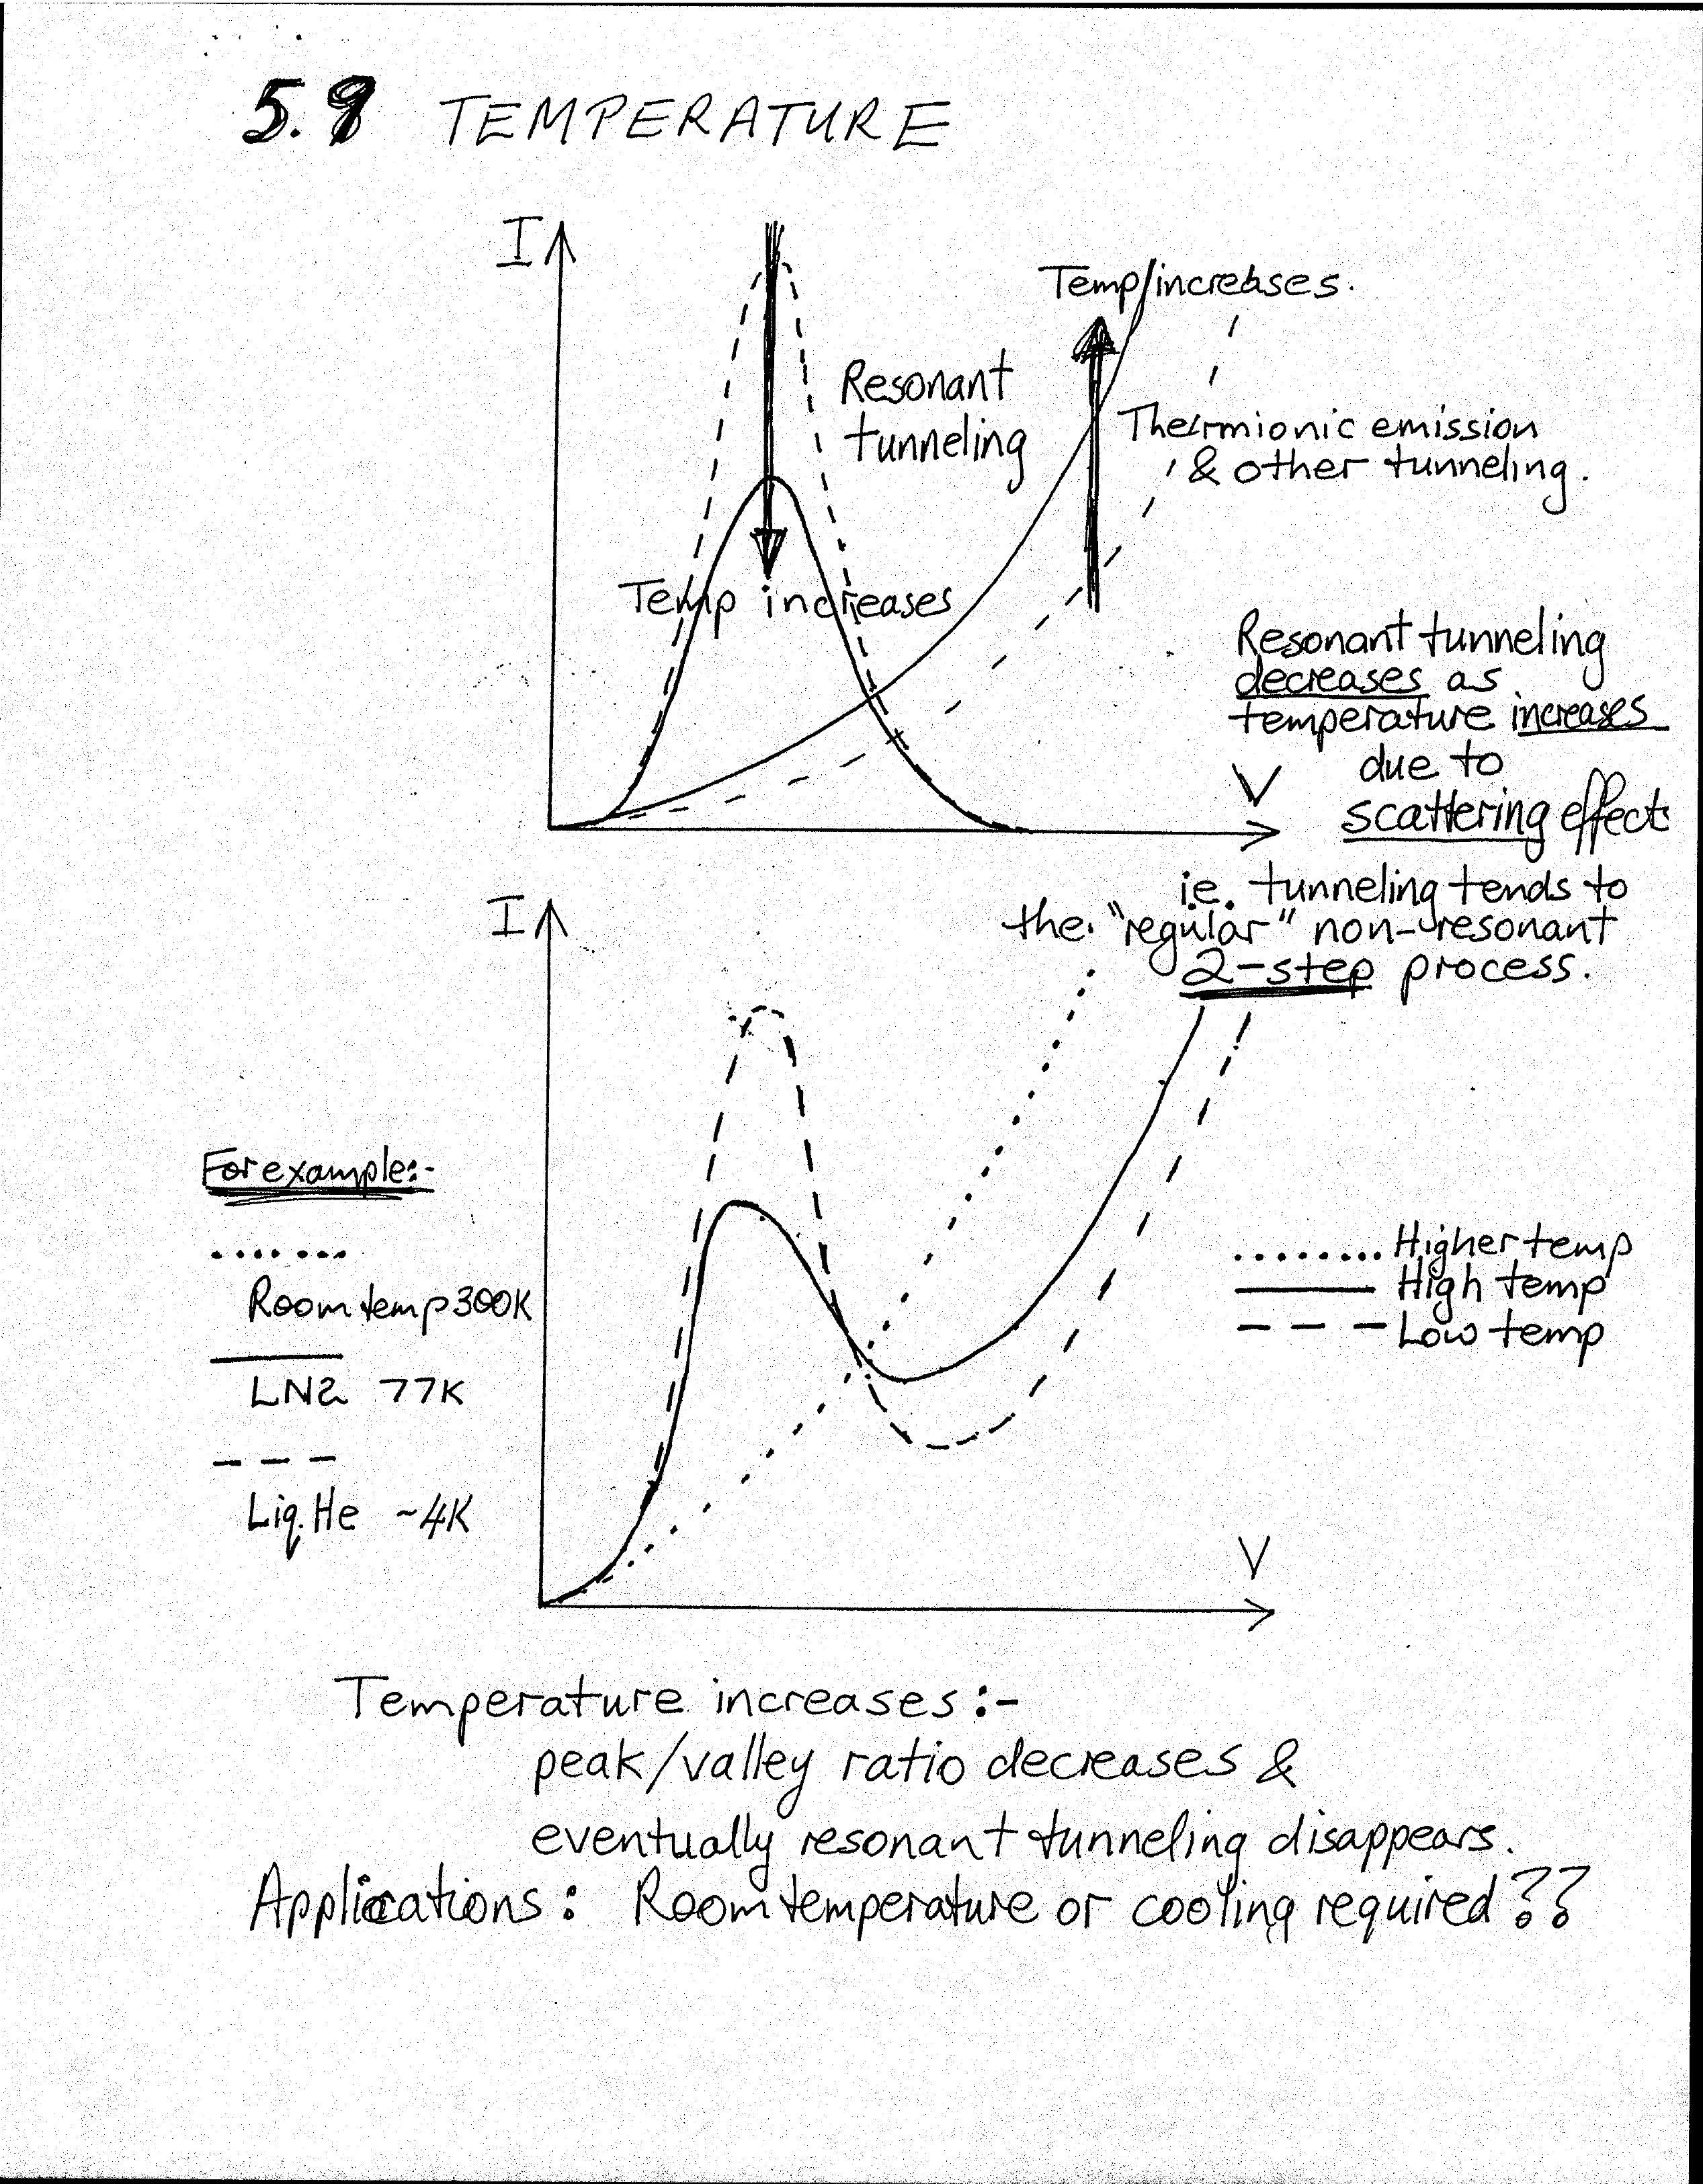 5.9 TEMPERATURE
I
Temp increases.
Resonant
tunneling
Thermionic emission
& other tunneling.
Temp increases
Resonant tunneling
decreases as
temperature increases
due to
V
scattering effects
i.e. tunneling tends to
the "regular" non-resonant
2-step process.
I
For example:-
Room temp 300K
LN2 77K
Liq. He ~4K
Higher temp
High temp
Low temp
V
Temperature increases:-
peak/valley ratio decreases &
eventually resonant tunneling disappears.
Applications: Room temperature or cooling required??